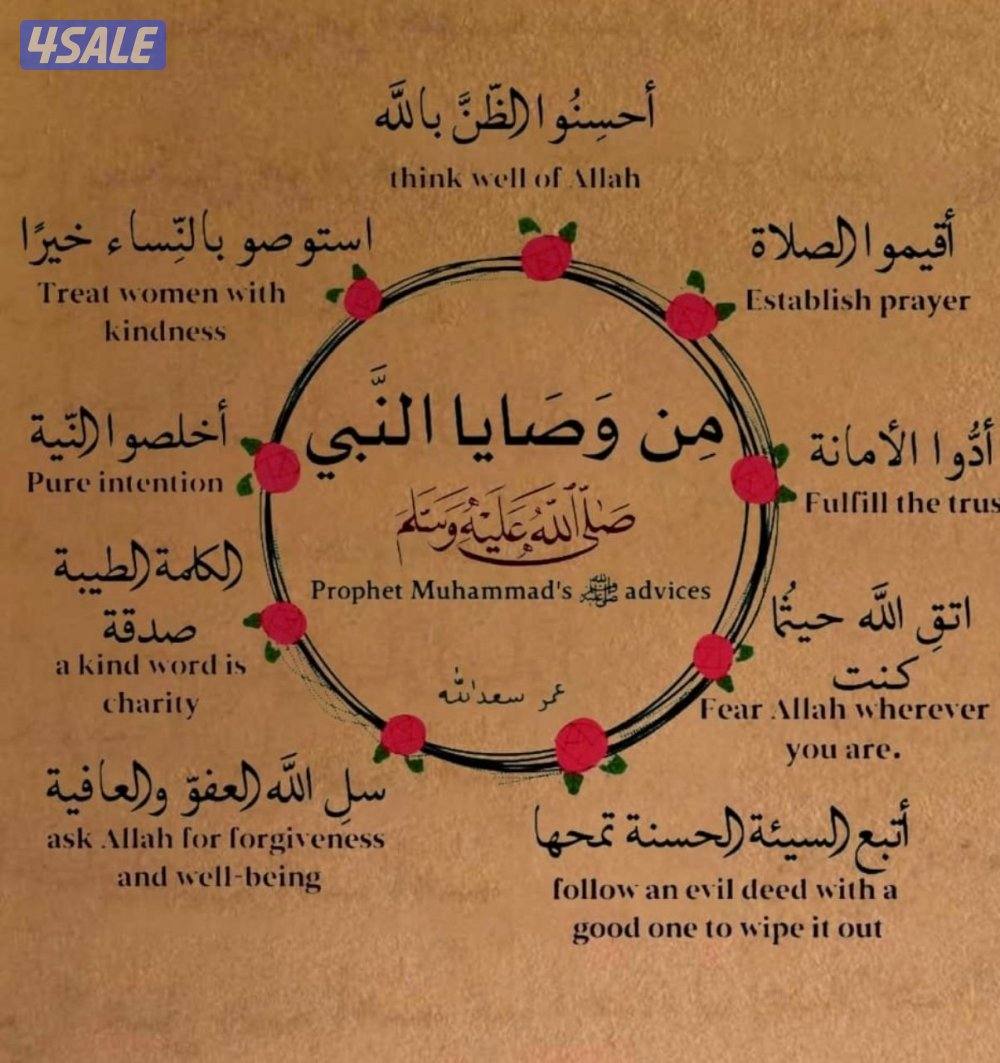 4SALE
أحسِنُوا الظّنَّ بالله
think well of Allah
أقيموا الصلاة
Establish prayer
أدُّوا الأمانة
Fulfill the trus
اتقِ اللَّه حيثُما
كنت
Fear Allah wherever
you are.
أتبع السيئة الحسنة تمحها
follow an evil deed with a
good one to wipe it out
سلِ اللَّه العفوّ والعافية
ask Allah for forgiveness
and well-being
الكلمة الطيبة
صدقة
a kind word is
charity
أخلصوا النّية
Pure intention
استوصو بالنِّساء خيرًا
Treat women with
kindness
مِن وَصَايا النَّبي
صَلَّى اللَّهُ عَلَيْهِ وَسَلَّمَ
Prophet Muhammad's ﷺ advices
عمر سعدالله